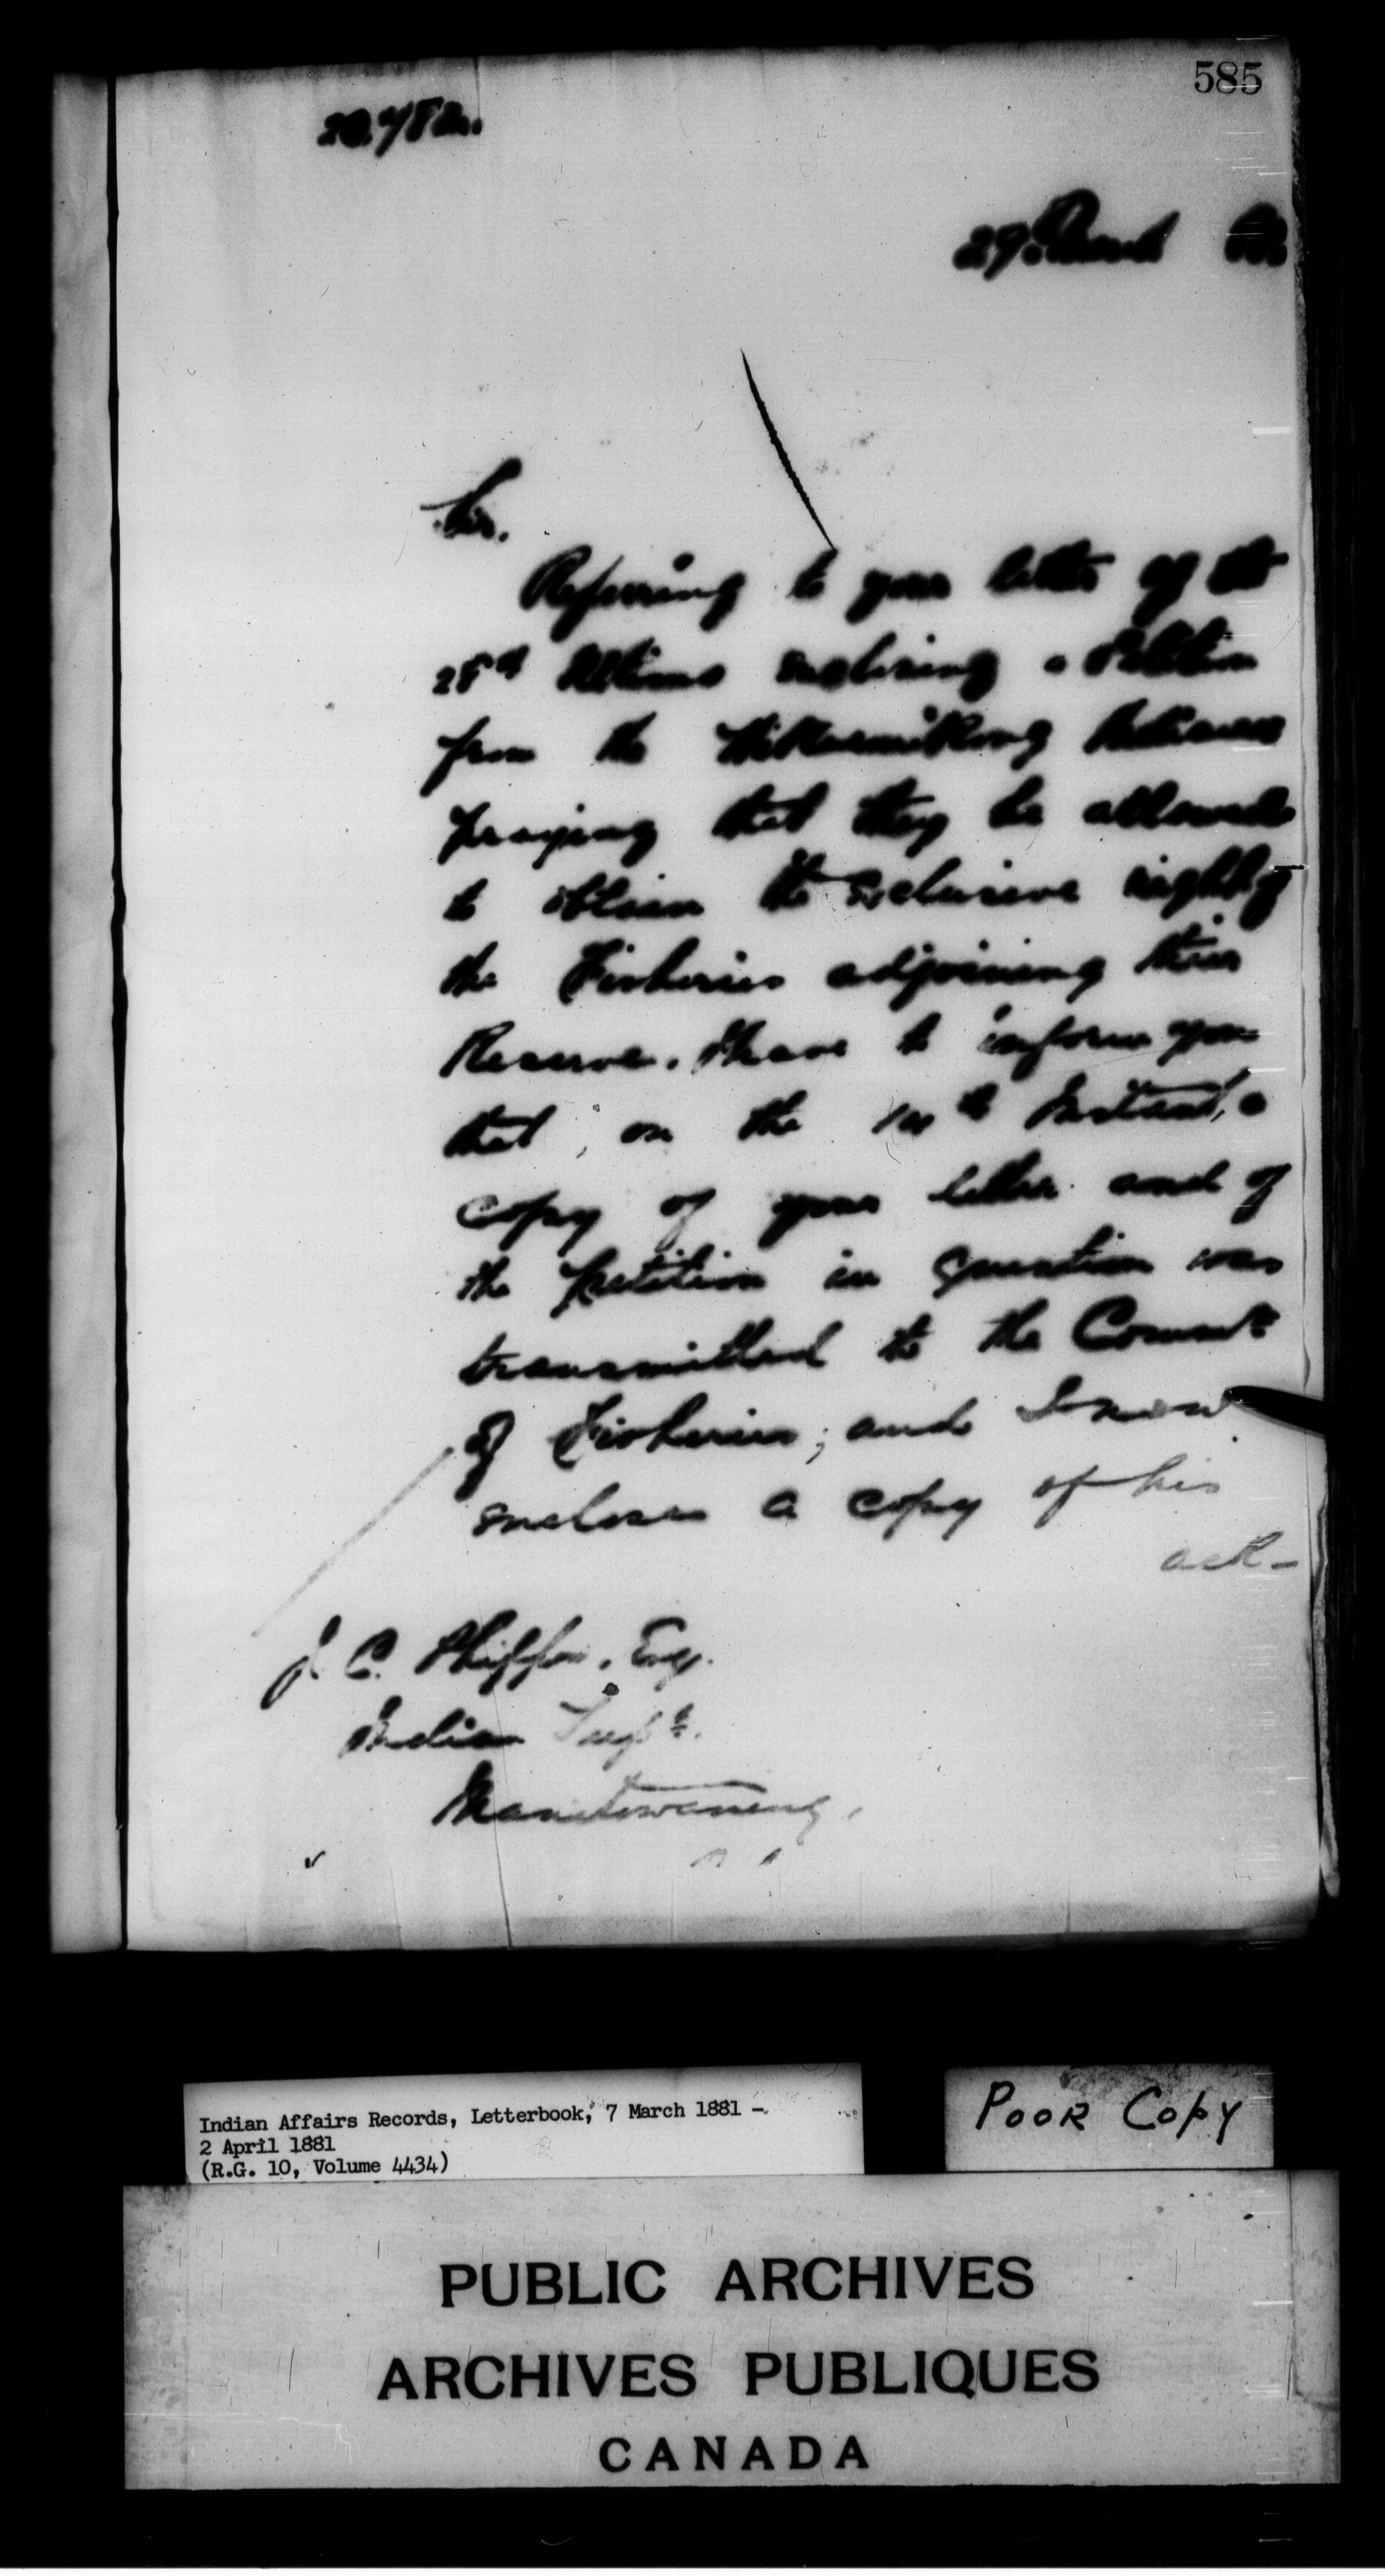 585
29 March
Sir.
Referring to your letter of the
28th Ultimo enclosing a Petition
from the Indians
praying that they be allowed
to obtain the exclusive right of
the Fisheries adjoining their
Reserve. I have to inform you
that, on the Instant, a
copy of your letter and of
the petition in question was
transmitted to the Commr
of Fisheries; and I now
enclose a copy of his
ack-
J. C. Phipps, Esq.
Indian Supt.
Manitowaning,
Indian Affairs Records, Letterbook, 7 March 1881 -
2 April 1881
(R.G. 10, Volume 4434)
POOR COPY
PUBLIC ARCHIVES
ARCHIVES PUBLIQUES
CANADA